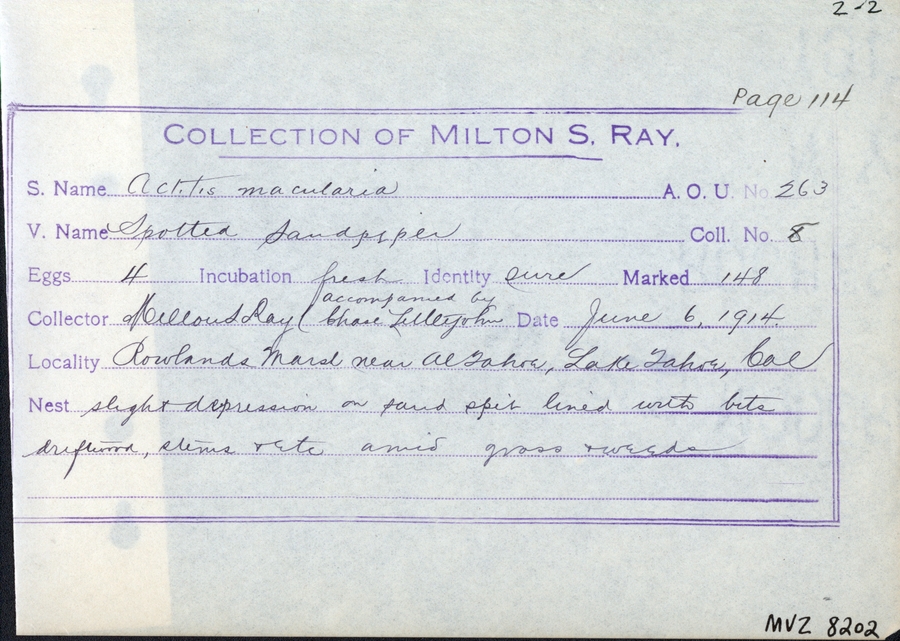 2-2
Page 114
COLLECTION OF MILTON S. RAY.
S. Name Actitis macularia A. O. U. No. 263
V. Name Spotted Sandpiper Coll. No. 8
Eggs 4 Incubation fresh Identity sure Marked 148
accompanied by
Collector Milton S Ray (Chase Littlejohn Date June 6, 1914.
Locality Rowlands Marsh near Al Tahoe, Lake Tahoe, Cal
Nest slight depression on sand spit lined with bits
driftwood, stems & etc amid grass & weeds
MVZ 8202